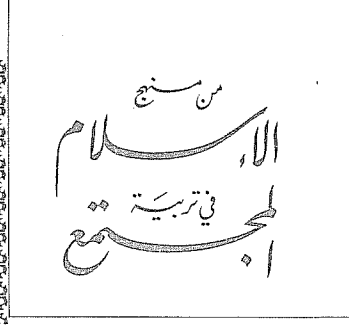 من منهج
الإسلام
في تربية
المجتمع